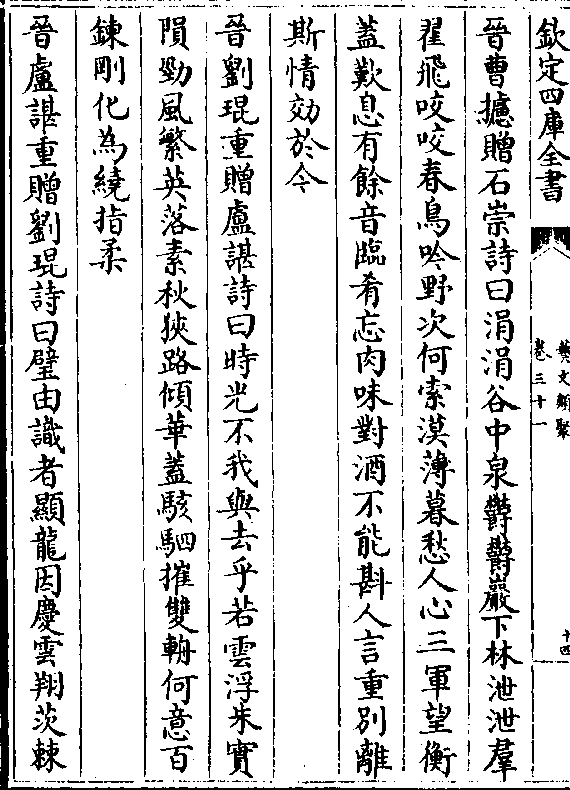 欽定四庫全書
藝文類聚
卷三十一
十四
晉曹攄贈石崇詩曰涓涓谷中泉鬱鬱巖下林泄泄羣
翟飛咬咬春鳥吟野次何索漠薄暮愁人心三軍望衡
蓋歎息有餘音臨肴忘肉味對酒不能斟人言重別離
斯情効於今
晉劉琨重贈盧諶詩曰時光不我與去乎若雲浮朱實
隕勁風繁英落素秋狹路傾華蓋駭駟摧雙輈何意百
鍊剛化為繞指柔
晉盧諶重贈劉琨詩曰璧由識者顯龍因慶雲翔茨棘